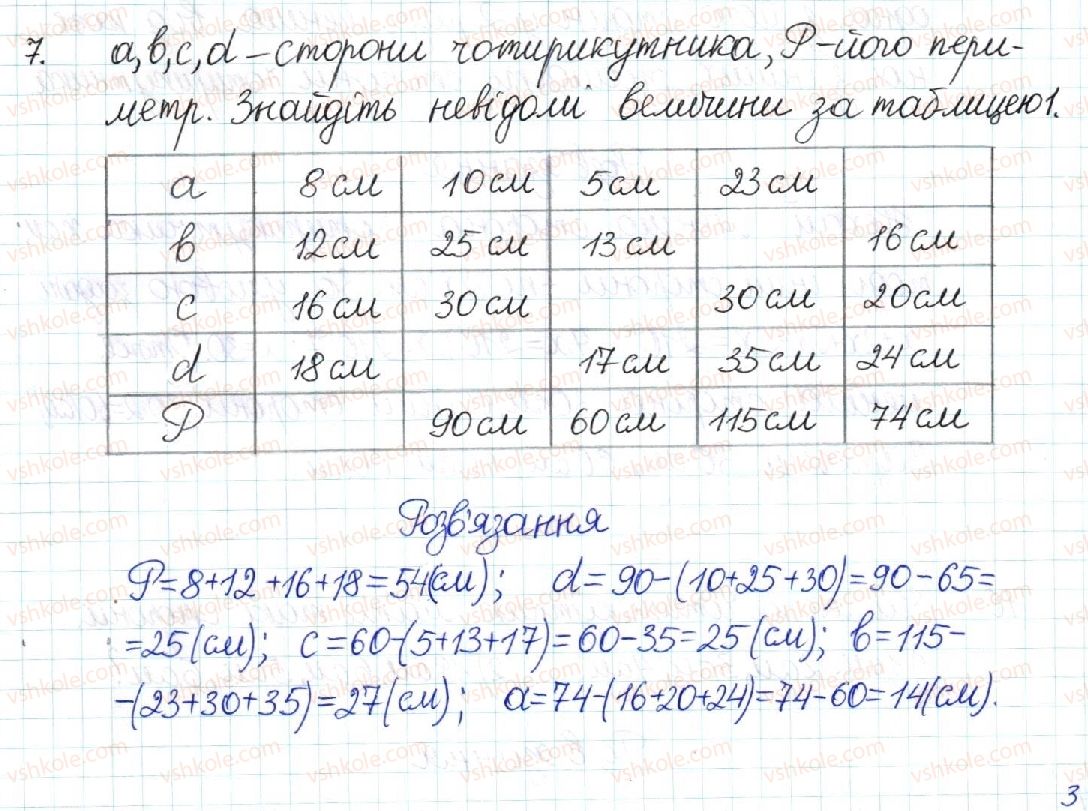 7. a, b, c, d – сторони чотирикутника, P – його пери-
метр. Знайдіть невідомі величини за таблицею 1.
a 8 см 10 см 5 см 23 см
b 12 см 25 см 13 см 16 см
c 16 см 30 см 30 см 20 см
d 18 см 17 см 35 см 24 см
P 90 см 60 см 115 см 74 см
Розв'язання
P = 8+12+16+18 = 54(см); d = 90-(10+25+30) = 90-65 =
= 25(см); c = 60-(5+13+17) = 60-35 = 25(см); b = 115-
-(23+30+35) = 27(см); a = 74-(16+20+24) = 74-60 = 14(см).
3